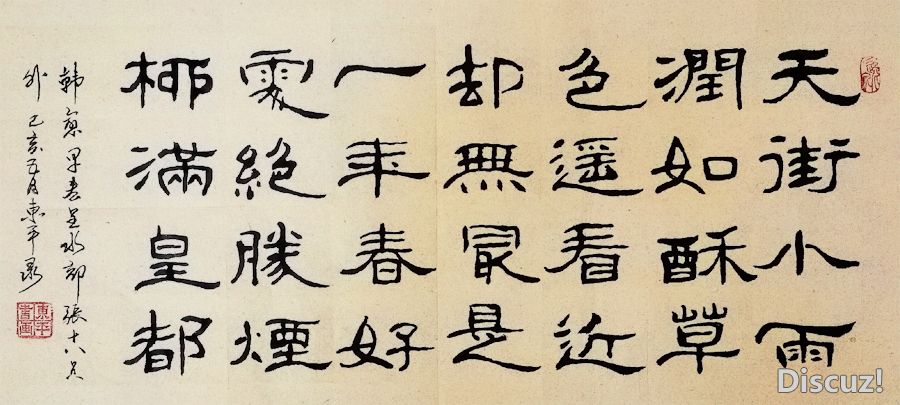 天街小雨
潤如酥草
色遥看近
却無最是
一年春好
處絕勝煙
柳滿皇都
韓愈早春呈水部張十八员
外 己亥五月東平录
東平書画
Discuz!